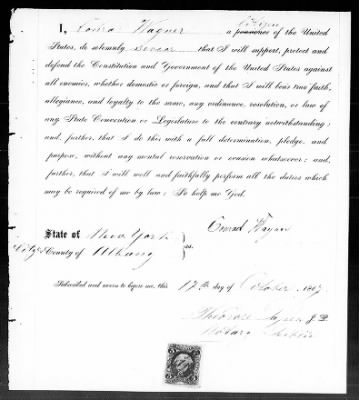 Citizen
I, Conrad Wagner a prisoner of the United
States, do solemnly swear that I will support, protect and
defend the Constitution and Government of the United States against
all enemies, whether domestic or foreign, and that I will bear true faith,
allegiance, and loyalty to the same, any ordinance, resolution, or law of
any State Convention or Legislature to the contrary notwithstanding;
and, further, that I do this with a full determination, pledge, and
purpose, without any mental reservation or evasion whatsoever; and,
further, that I will well and faithfully perform all the duties which
may be required of me by law; So help me God.
Conrad Wagner
State of New York
City & County of Albany } ss.
Subscribed and sworn to before me, this 17th day of October 1867
Theodore
Notary Public